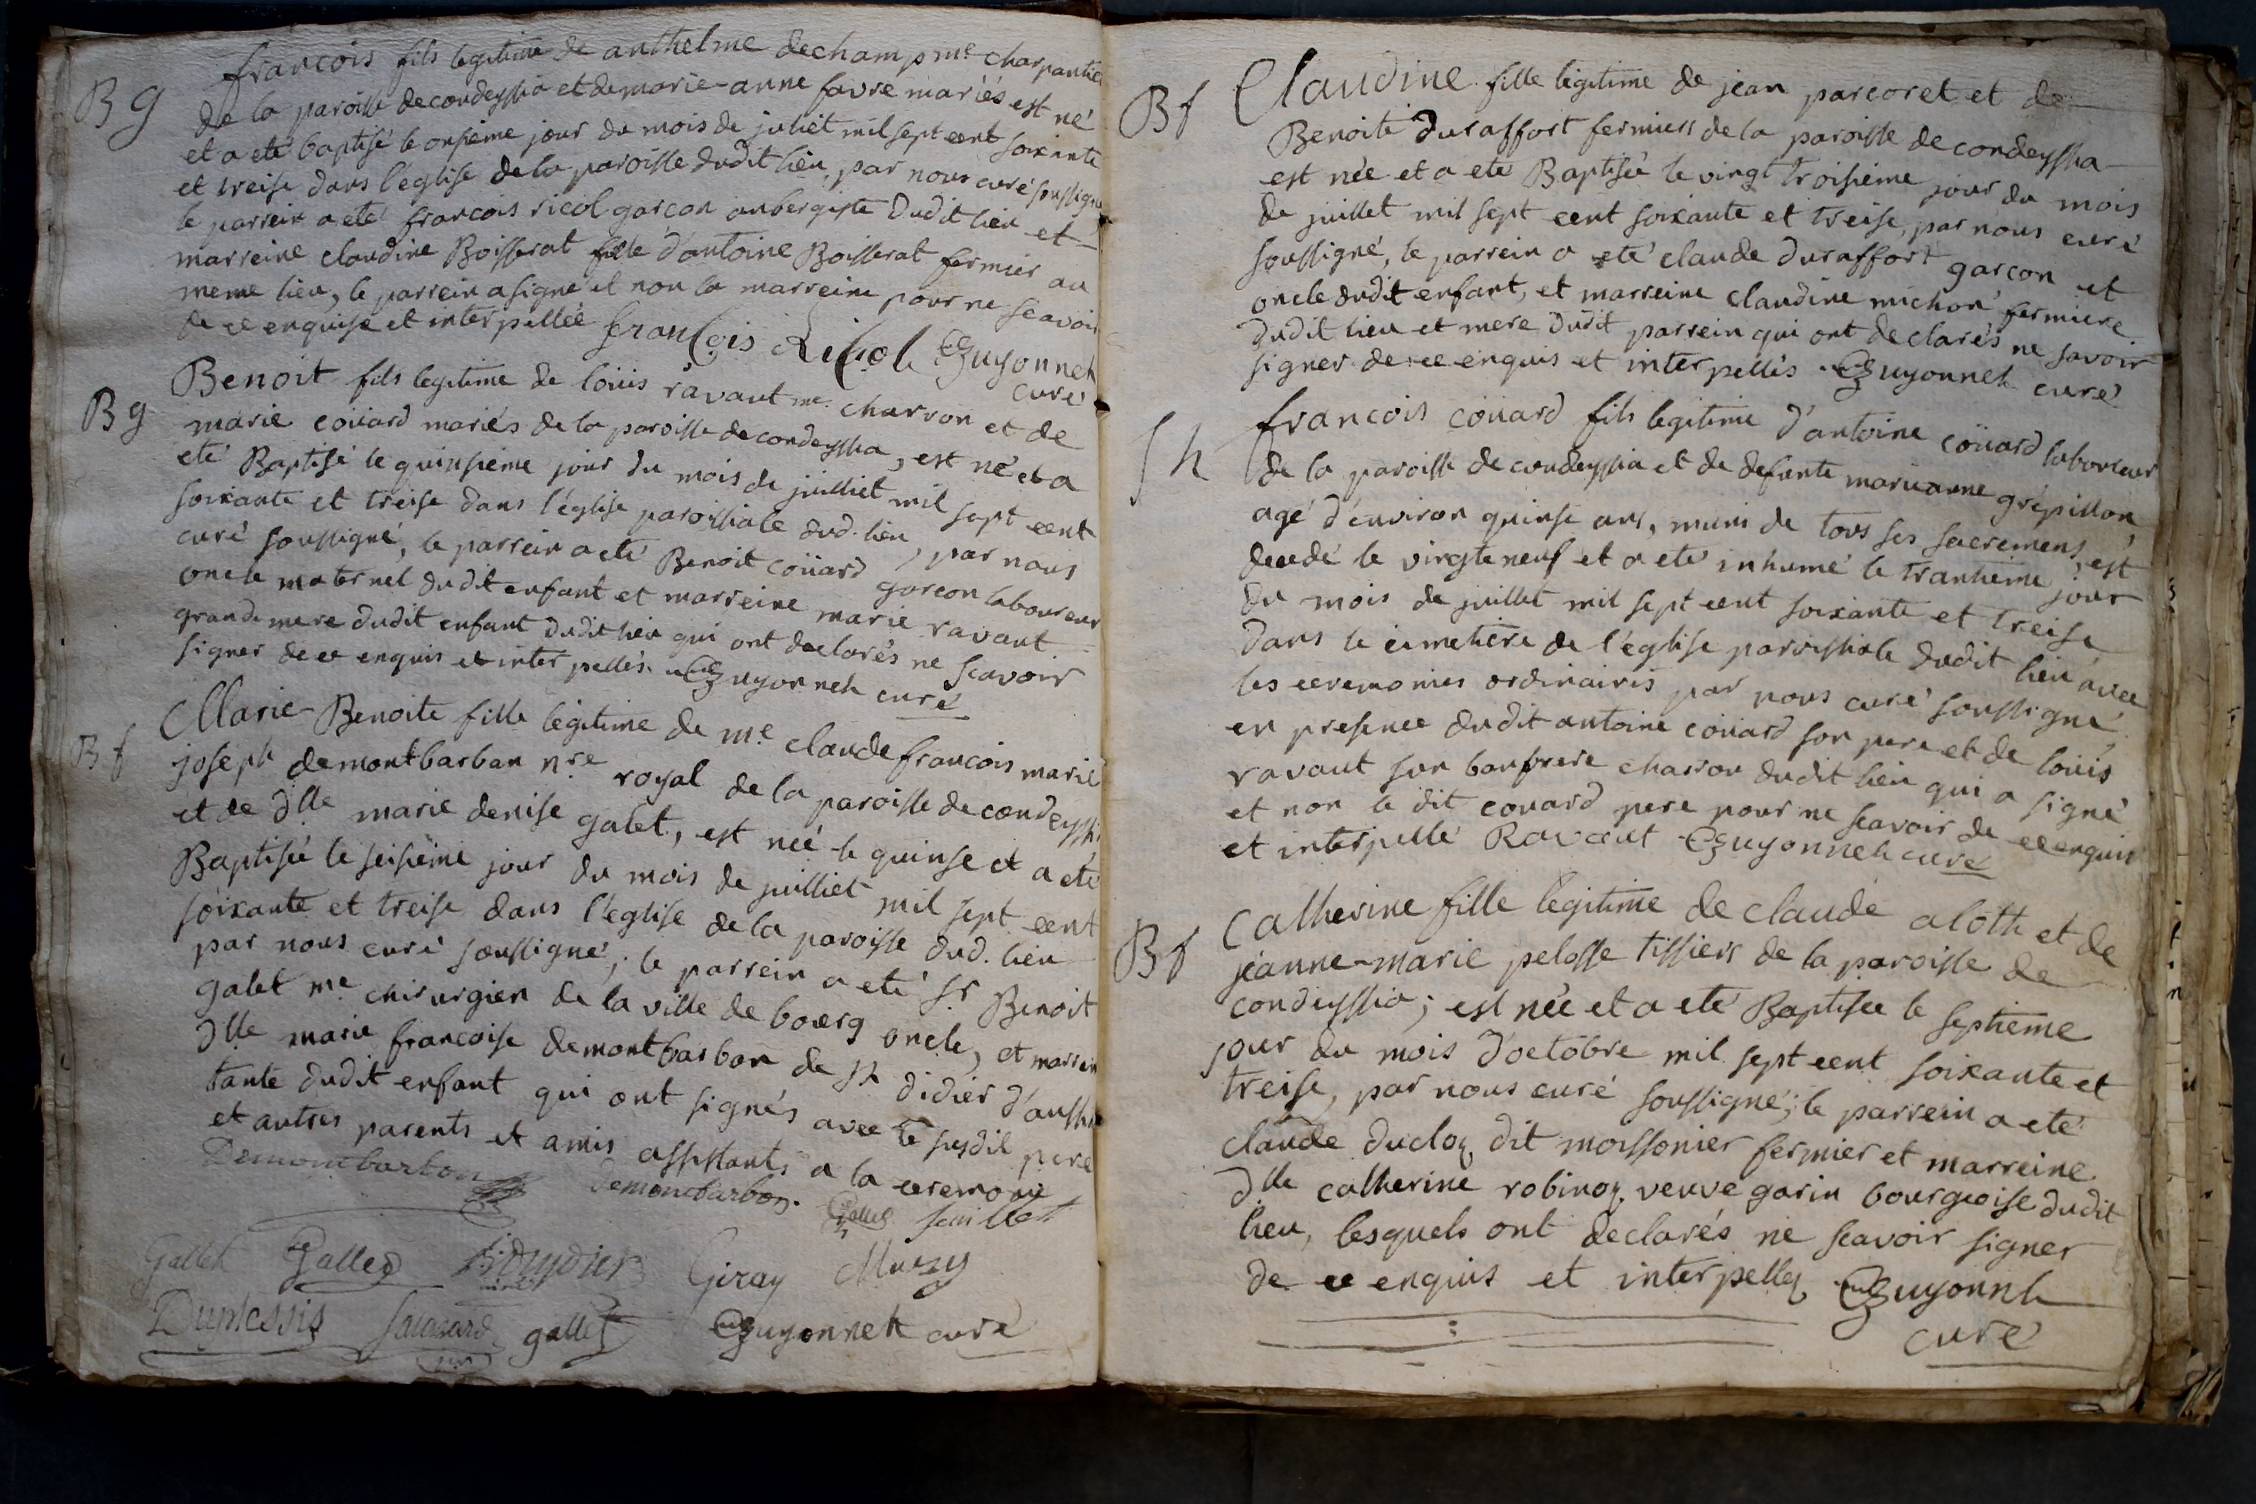 françois fils legitime de anthelme dechamp me charpantie
Bg
de la paroisse de condeyssia et de marie-anne favre mariés est né
et a eté baptisé le onsieme jour du mois de juliet mil sept cent soixante
et treise dans l'eglise de la paroisse dudit lieu, par nous curé soussigné
le parrein a eté francois ricol garçon aubergiste dudit lieu et
marreine claudine Boisserat fille d'antoine Boisserat fermier au
meme lieu, le parrein a signé et non la marreine pour ne scavoir
de ce enquise et interpellée françois Ricol Guyonnet
curé
Bg
Benoit fils legitime de loüis ravaut me charron et de
marie coüard mariés de la paroisse de condeyssia, est né et a
eté Baptisé le quinsieme jour du mois de juilliet mil sept cent
soixante et treise dans l'église paroissiale dud. lieu, par nous
curé soussigné, le parrein a eté Benoit coüard garcon laboureur
oncle maternel dudit enfant et marreine marie ravaut
grande mere dudit enfant dudit lieu qui ont declarés ne scavoir
signer de ce enquis et interpellés. Guyonnet curé
Bf
Marie-Benoite fille légitime de me claude francois marie
joseph demontbarban nre royal de la paroisse de condeyssi
et de dlle marie denise galet, est née le quinse et a eté
Baptisée le seisieme jour du mois de juilliet mil sept cent
soixante et treise dans l'eglise de la paroisse dud. lieu
par nous curé soussigné; le parrein a eté sr Benoit
galet me chirurgien de la ville de bourg oncle, et marrein
dlle marie francoise demontbarbon de st didier d'aussia
tante dudit enfant qui ont signés avec le susdit pere
et autres parents et amis assistants a la ceremonie
Demontbarbon Demontbarbon. Gallet
Gallet Gallet Giray Muzy
Duplessis gallet Guyonnet curé
Bf
Claudine fille légitime de jean parcoret et de
Benoite duraffort fermiers de la paroisse de condeyssia
est née et a eté Baptisée le vingt troisieme jour du mois
de juillet mil sept cent soixante et treise, par nous curé
soussigné, le parrein a eté claude duraffort garcon et
oncle dudit enfant, et marreine claudine michon fermiere
dudit lieu et mere dudit parrein qui ont declarés ne savoir
signer de ce enquis et interpellés. Guyonnet curé
Sh
francois coüard fils legitime d'antoine coüard laboureur
de la paroisse de condeyssia et de defunte marieanne grépillon
agé d'environ quinse ans, muni de tous ses sacremens, est
decedé le vingte neuf et a eté inhumé le trantieme jour
du mois de juillet mil sept cent soixante et treise
dans le cimetière de l'église paroissiale dudit lieu avec
les ceremonies ordinairis par nous curé soussigné
en presence dudit antoine coüard son pere et de loüis
ravaut son baufrere charron dudit lieu qui a signé
et non le dit couard pere pour ne scavoir de ce enquis
et interpellé Ravaut Guyonnet curé
Bf
Catherine fille legitime de claude aloth et de
jeanne-marie pelosse tissiers de la paroisse de
condeyssia; est née et a eté Baptisee le septieme
jour du mois d'octobre mil sept cent soixante et
treise, par nous curé soussigné; le parrein a eté
claude ducloz dit moissonier fermier et marreine
dlle catherine robinoz veuve garin bourgeoise dudit
lieu, lesquels ont declarés ne scavoir signer
de ce enquis et interpellez Guyonnet
curé